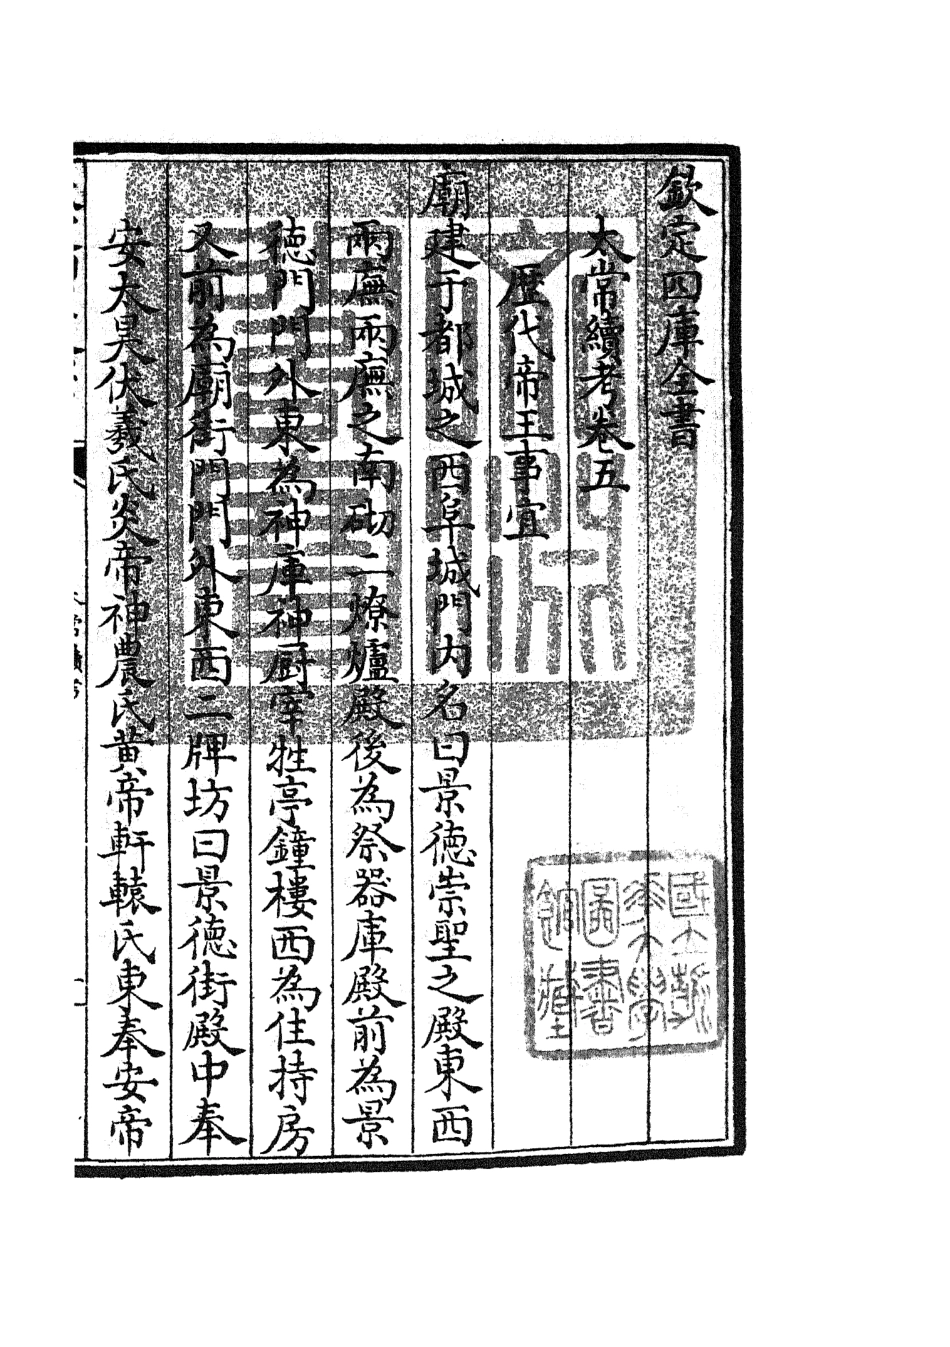 欽定四庫全書
太常續考卷五
歷代帝王事宜
廟建于都城之西阜城門内名曰景徳崇聖之殿東西
兩廡兩廡之南砌二燎爐殿後為祭器庫殿前為景
徳門門外東為神庫神厨宰牲亭鐘樓西為住持房
又前為廟街門門外東西二牌坊曰景徳街殿中奉
安太昊伏羲氏炎帝神農氏黄帝軒轅氏東奉安帝
國立清華大學圖書館藏